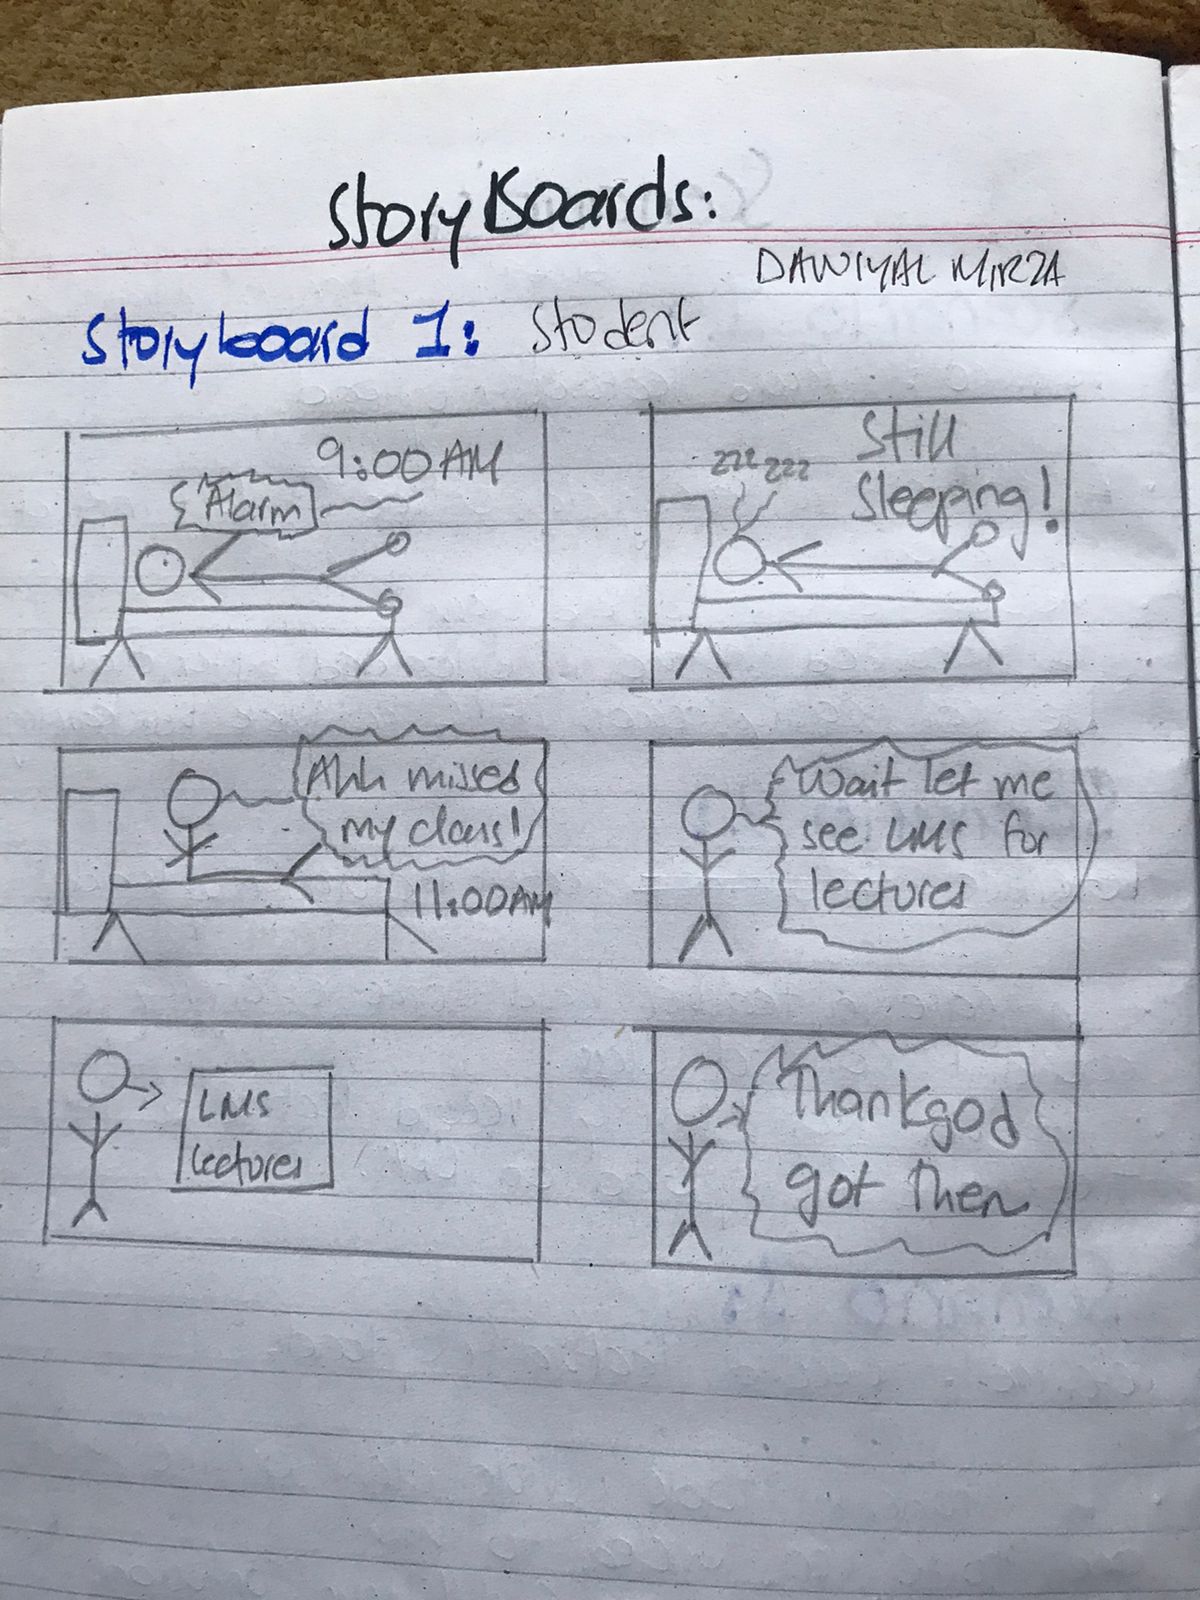 StoryBoards:
DANIYAL MIRZA
Storyboard 1: Student
9:00AM
Alarm
zzz zzz
Still
Sleeping!
Ahh missed
my class!
11:00AM
Wait let me
see LMS for
lectures
LMS
lectures
Thankgod
got them